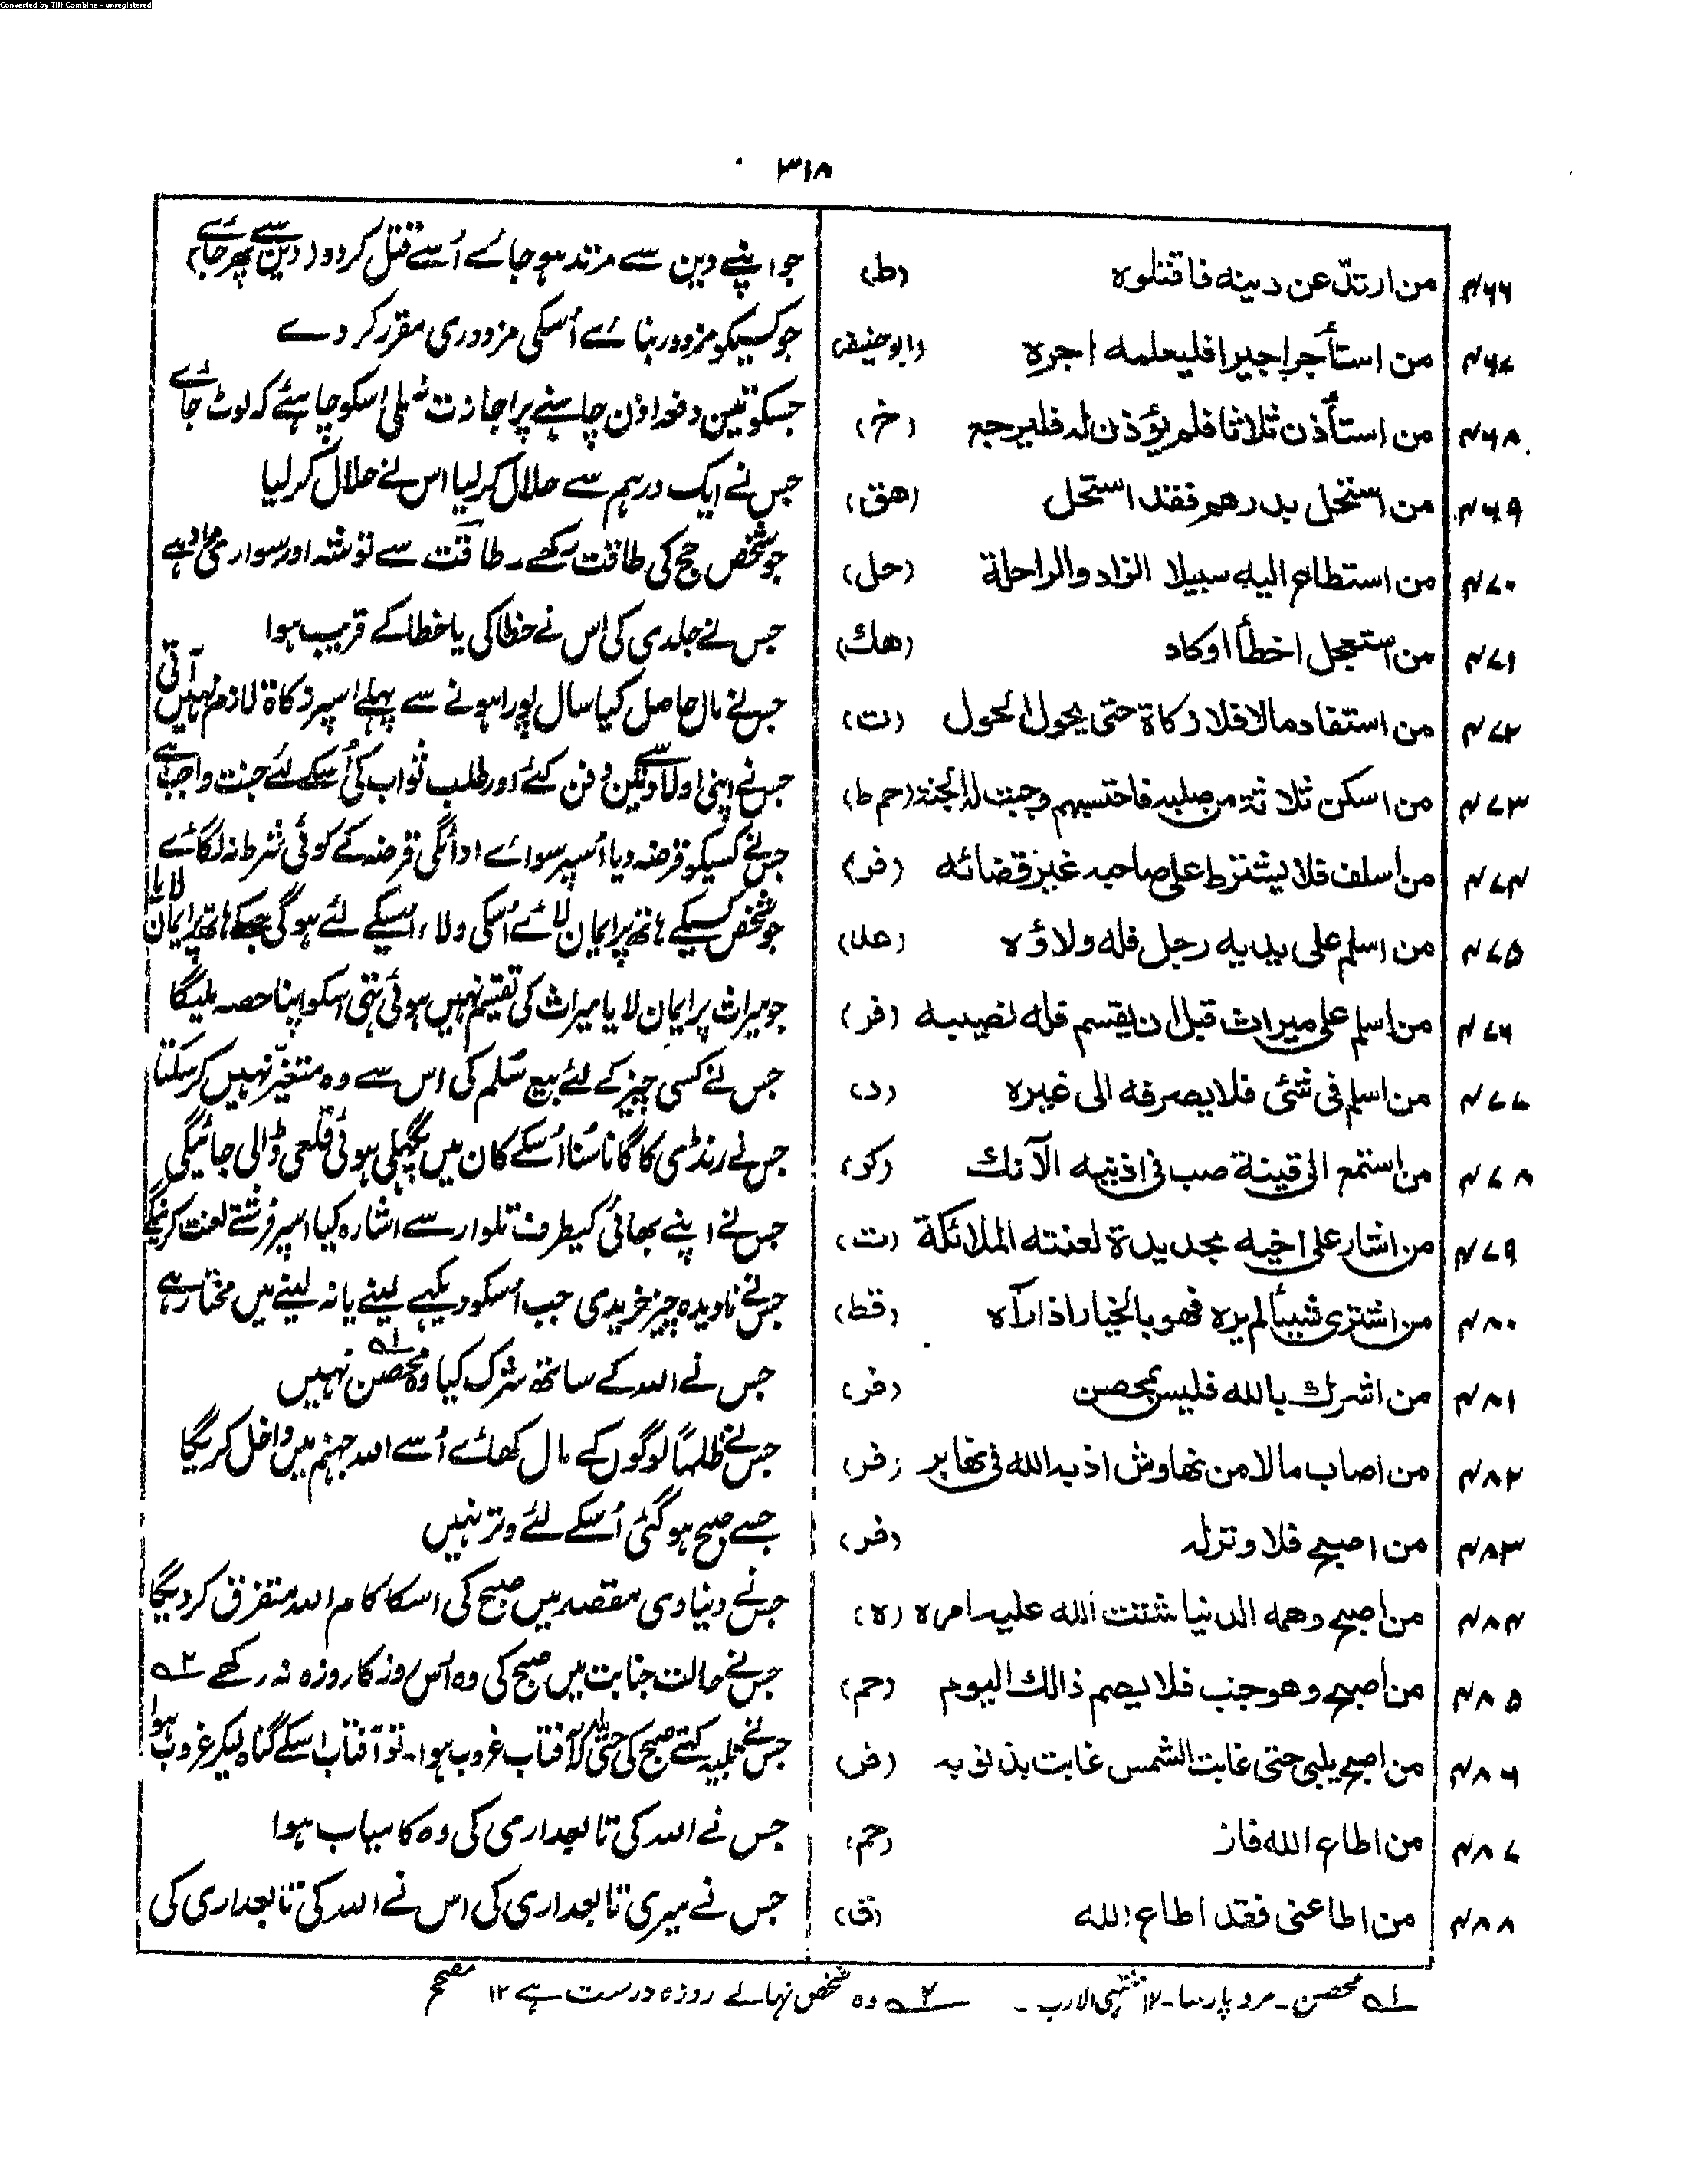 Converted by Tiff Combine - unregistered
۳۱۸
۴۶۶ من ارتدّ عن دینه فاقتلوه (ط) جو اپنے دین سے مرتد ہوجائے اُسے قتل کردو (دین سے پھر جائے)
۴۶۷ من استأجر اجیرا فلیعلمه اجره (ابوحنیفہ) جو کسیکو مزدور بنائے اُسکی مزدوری مقرر کر دے
۴۶۸ من استأذن ثلاثا فلم یؤذن له فلیرجع (خ) جسکو تین دفعہ اذن چاہنے پر اجازت نہ ملی اسکو چاہئے کہ لوٹ جائے
۴۶۹ من استحل بدرهم فقد استحل (هق) جس نے ایک درہم سے حلال کرلیا اس نے حلال کرلیا
۴۷۰ من استطاع الیه سبیلا الزاد والراحلة (حل) جو شخص حج کی طاقت رکھے۔ طاقت سے توشہ اور سواری مراد ہے
۴۷۱ من استعجل اخطأ اوکاد (هك) جس نے جلدی کی اس نے خطا کی یا خطا کے قریب ہوا
۴۷۲ من استفاد مالا فلا زکاة حتی یحول الحول (ت) جس نے مال حاصل کیا سال پورا ہونے سے پہلے اسپر زکاة لازم نہیں آتی
۴۷۳ من اسکن ثلاثة من صلبه فاحتسبهم وجبت له الجنة (حم ط) جس نے اپنی اولاد سے تین دفن کئے اور طلب ثواب کی اُسکے لئے جنت واجب ہے
۴۷۴ من اسلف فلا یشترط علی صاحبه غیر قضائه (فر) جس نے کسیکو قرضہ دیا اُسپر سوائے ادائگی قرضہ کے کوئی شرط نہ لگائے
۴۷۵ من اسلم علی یدیه رجل فله ولاؤه (علا) جو شخص کسیکے ہاتھ پر ایمان لائے اُسکی ولاء اسیکے لئے ہوگی جسکے ہاتھ پر ایمان لایا
۴۷۶ من اسلم علی میراث قبل ان یقسم فله نصیبه (فر) جو میراث پر ایمان لایا میراث کی تقسیم نہیں ہوئی تھی اسکو اپنا حصہ ملیگا
۴۷۷ من اسلم فی شئی فلا یصرفه الی غیره (د) جس نے کسی چیز کے لئے بیع سَلم کی اس سے وہ متغیّر نہیں کرسکتا
۴۷۸ من استمع الی قینة صب فی اذنیه الآنك (کر) جس نے رنڈی کا گانا سُنا اُسکے کان میں پگھلی ہوئی قلعی ڈالی جائیگی
۴۷۹ من اشار علی اخیه بحدیدة لعنته الملائکة (ت) جس نے اپنے بھائی کیطرف تلوار سے اشارہ کیا اسپر فرشتے لعنت کرینگے
۴۸۰ من اشتری شیئا لم یره فهو بالخیار اذا رآه (قط) جس نے نادیدہ چیز خریدی جب اُسکو دیکہے لینے یا نہ لینے میں مختار ہے
۴۸۱ من اشرك بالله فلیس بمحصن (فر) جس نے اللہ کے ساتھ شرک کیا وہ محصن ۱؎ نہیں
۴۸۲ من اصاب مالا من نهاوش اذهبه الله فی نهابر (فر) جس نے ظلماً لوگوں کے مال کھائے اُسے اللہ جہنم میں داخل کریگا
۴۸۳ من اصبح فلا وترله (فر) جسے صبح ہوگئی اُسکے لئے وتر نہیں
۴۸۴ من اصبح وهمه الدنیا شتت الله علیه امره (ه) جس نے دنیاوی مقصد میں صبح کی اسکا کام اللہ متفرق کردیگا
۴۸۵ من اصبح وهوجنب فلا یصم ذالك الیوم (حم) جس نے حالت جنابت میں صبح کی وہ اُس روز کا روزہ نہ رکھے ۲؎
۴۸۶ من اصبح یلبی حتی غابت الشمس غابت بذنوبه (ض) جس نے تلبیہ کہتے صبح کی حتّٰی کہ آفتاب غروب ہوا۔ تو آفتاب اسکے گناہ لیکر غروب ہوا
۴۸۷ من اطاع الله فاز (حم) جس نے اللہ کی تابعداری کی وہ کامیاب ہوا
۴۸۸ من اطاعنی فقد اطاع الله (ق) جس نے میری تابعداری کی اس نے اللہ کی تابعداری کی
۱؎ محصن۔ مرد پارسا۔ ۱۲ منتہی الارب۔ ۲؎ وہ شخص نہالے روزہ درست ہے ۱۲ مصحح